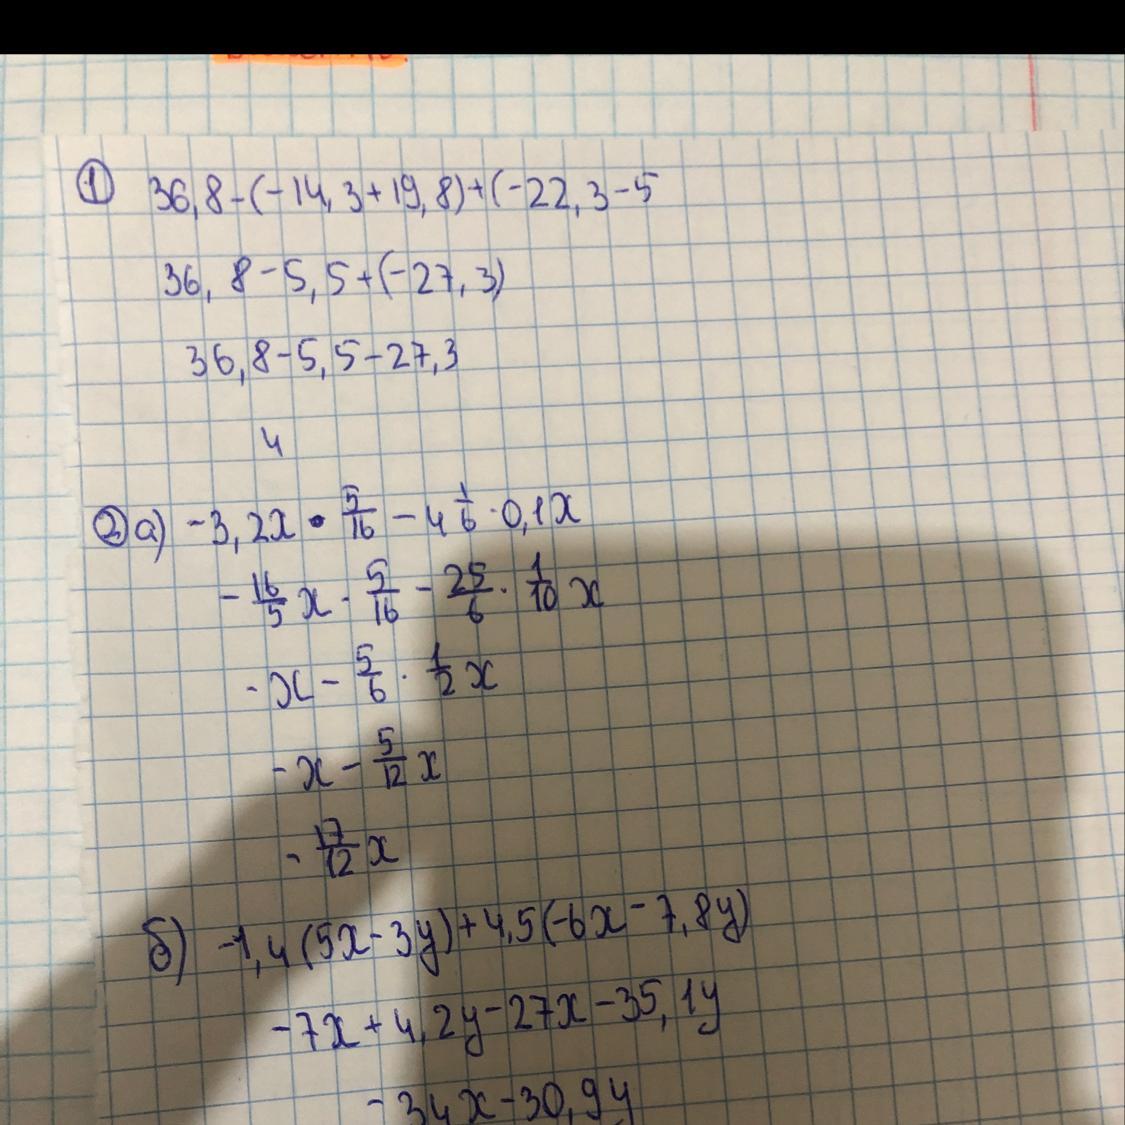 ① 36,8-(-14,3+19,8)+(-22,3-5
36,8-5,5+(-27,3)
36,8-5,5-27,3
4
② а) -3,2x • 5/16 - 4 1/6 · 0,1x
- 16/5 x · 5/16 - 25/6 · 1/10 x
-x - 5/6 · 1/2 x
-x - 5/12 x
- 17/12 x
б) -1,4(5x-3y)+4,5(-6x-7,8y)
-7x+4,2y-27x-35,1y
-34x-30,9y